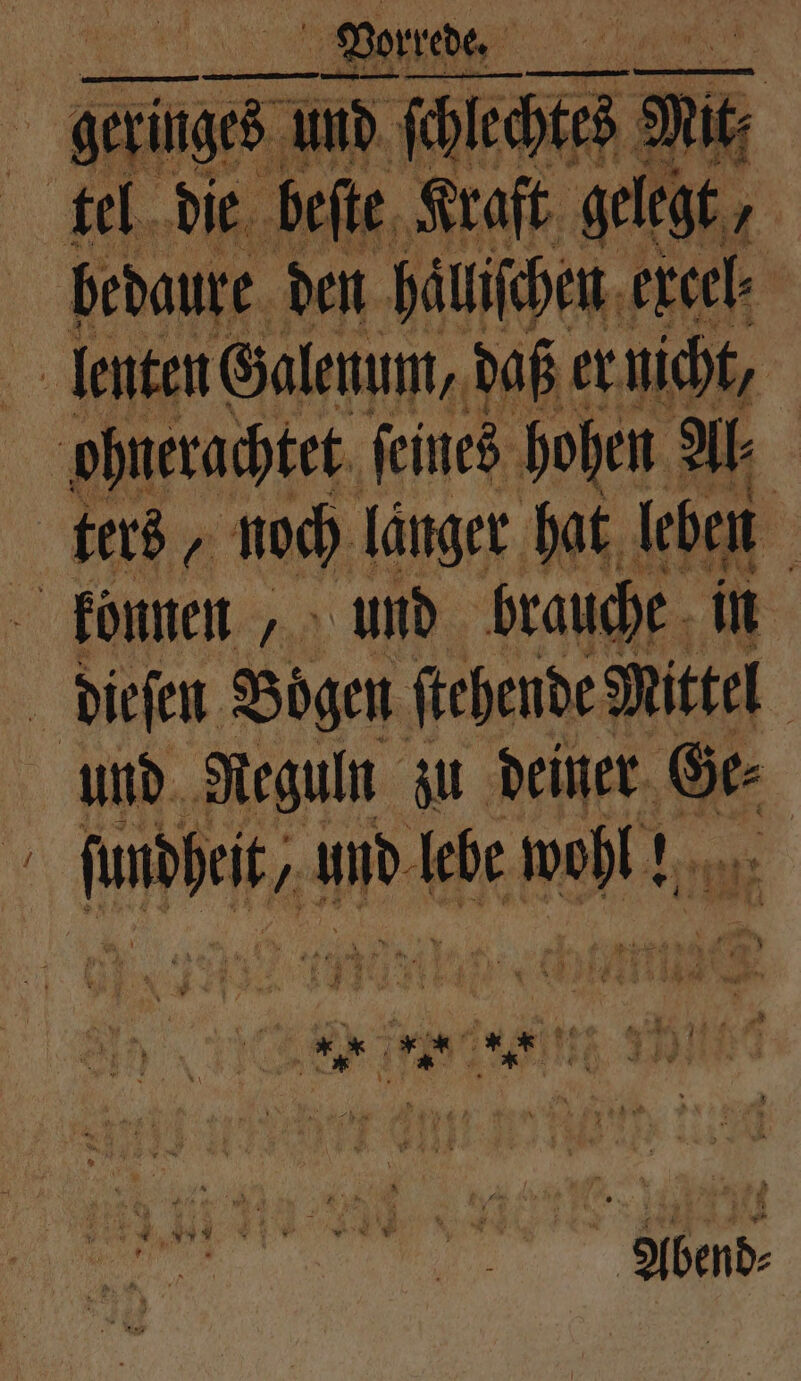 Vorrede.
geringes und ſchlechtes Mit⸗
tel die beſte Kraft gelegt,
bedaure den haͤlliſchen excel⸗
lenten Galenum, daß er nicht,
ohnerachtet ſeines hohen Al⸗
ters, noch laͤnger hat leben
koͤnnen, und brauche in
dieſen Boͤgen ſtehende Mittel
und Reguln zu deiner Ge⸗
ſundheit, und lebe wohl!
*** *** ***
Abend⸗